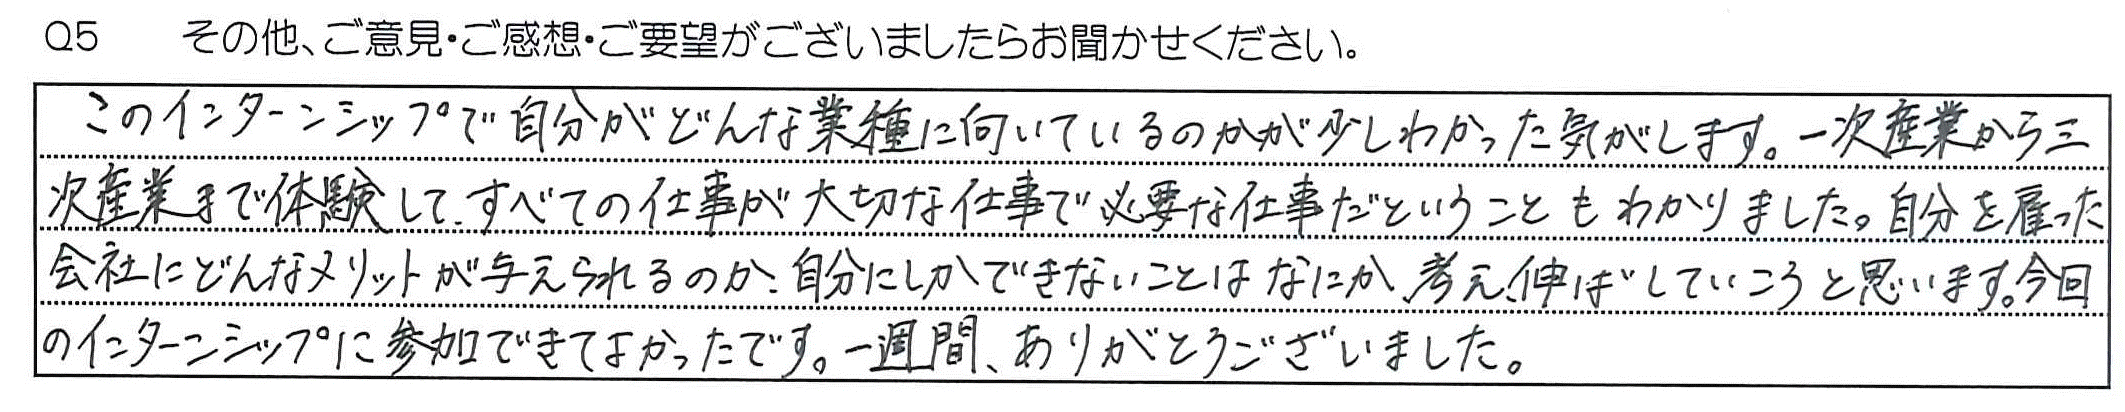 Q5 その他、ご意見・ご感想・ご要望がございましたらお聞かせください。
このインターンシップで自分がどんな業種に向いているのかが少しわかった気がします。一次産業から三
次産業まで体験して、すべての仕事が大切な仕事で必要な仕事だということもわかりました。自分を雇った
会社にどんなメリットが与えられるのか、自分にしかできないことはなにか、考え、伸ばしていこうと思います。今回
のインターンシップに参加できてよかったです。一週間、ありがとうございました。